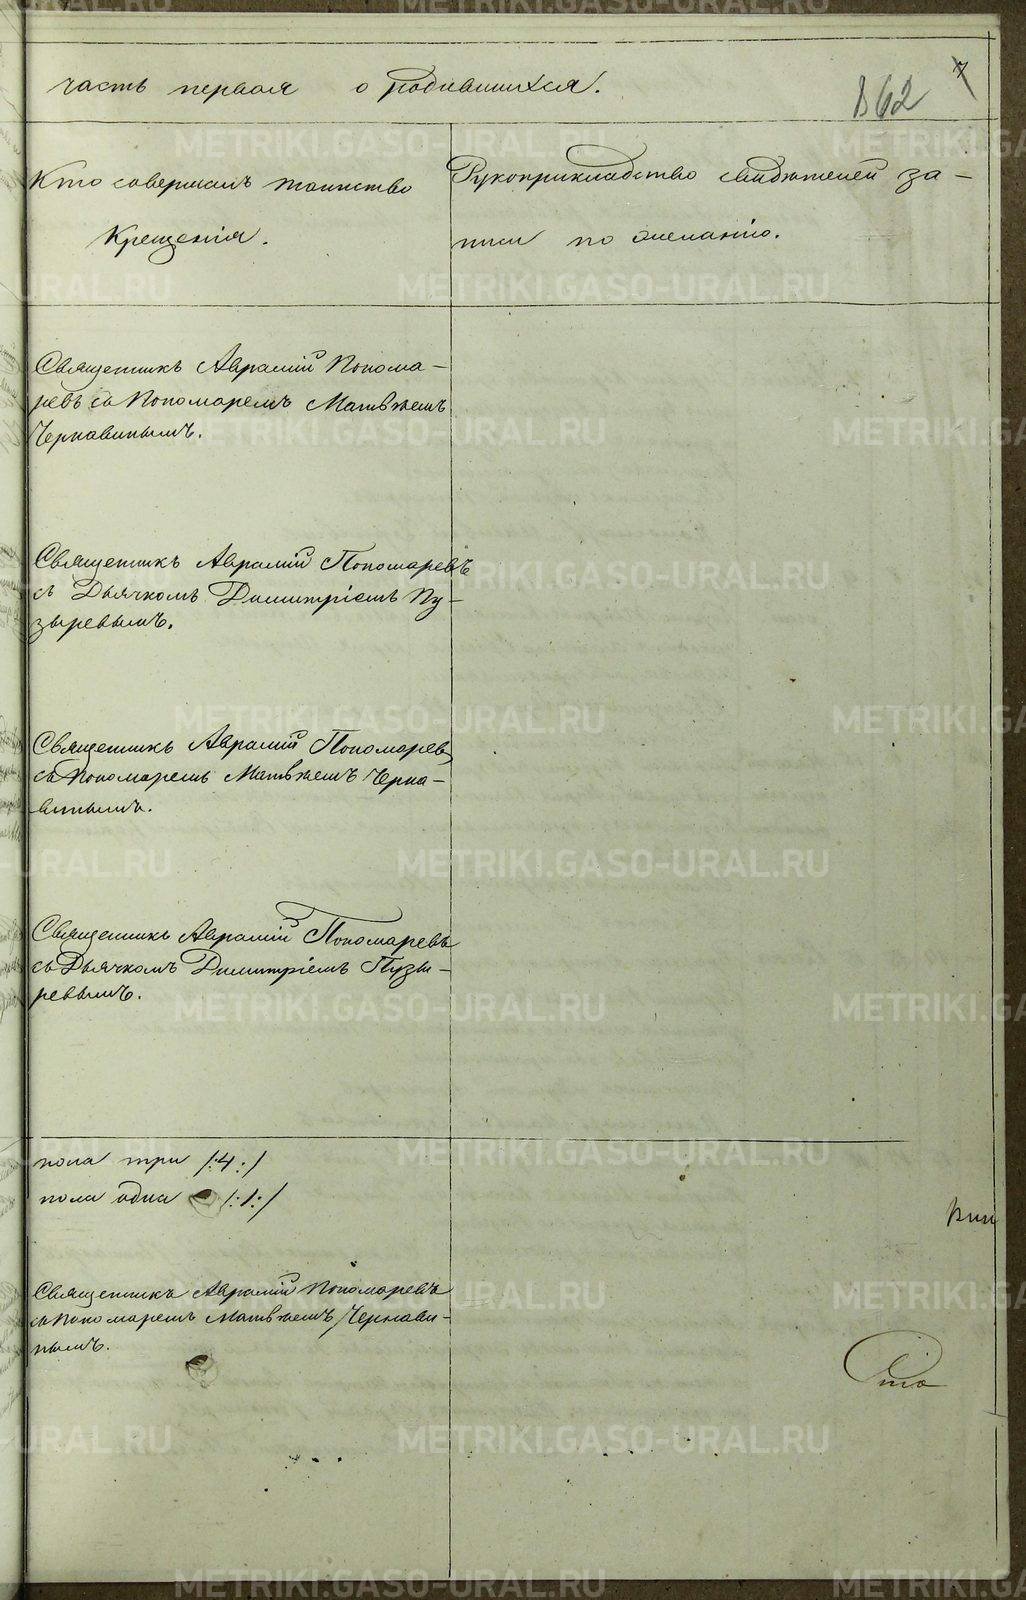 часть первая о родившихся.
862 7
Кто совершалъ таинство
Крещенія.
Рукоприкладство свидѣтелей за-
писи по желанію.
Священникъ Авраамій Понома-
ревъ съ Пономаремъ Матвѣемъ
Чернавинымъ.
Священникъ Авраамій Пономаревъ
съ Дьячкомъ Димитріемъ Пу-
зыревымъ.
Священникъ Авраамій Пономаревъ
съ Пономаремъ Матвѣемъ Черна-
винымъ.
Священникъ Авраамій Пономаревъ
съ Дьячкомъ Димитріемъ Пузы-
ревымъ.
пола три /:4:/
пола одна /:1:/
Священникъ Авраамій Пономаревъ
съ Пономаремъ Матвѣемъ Чернави-
нымъ.
METRIKI.GASO-URAL.RU